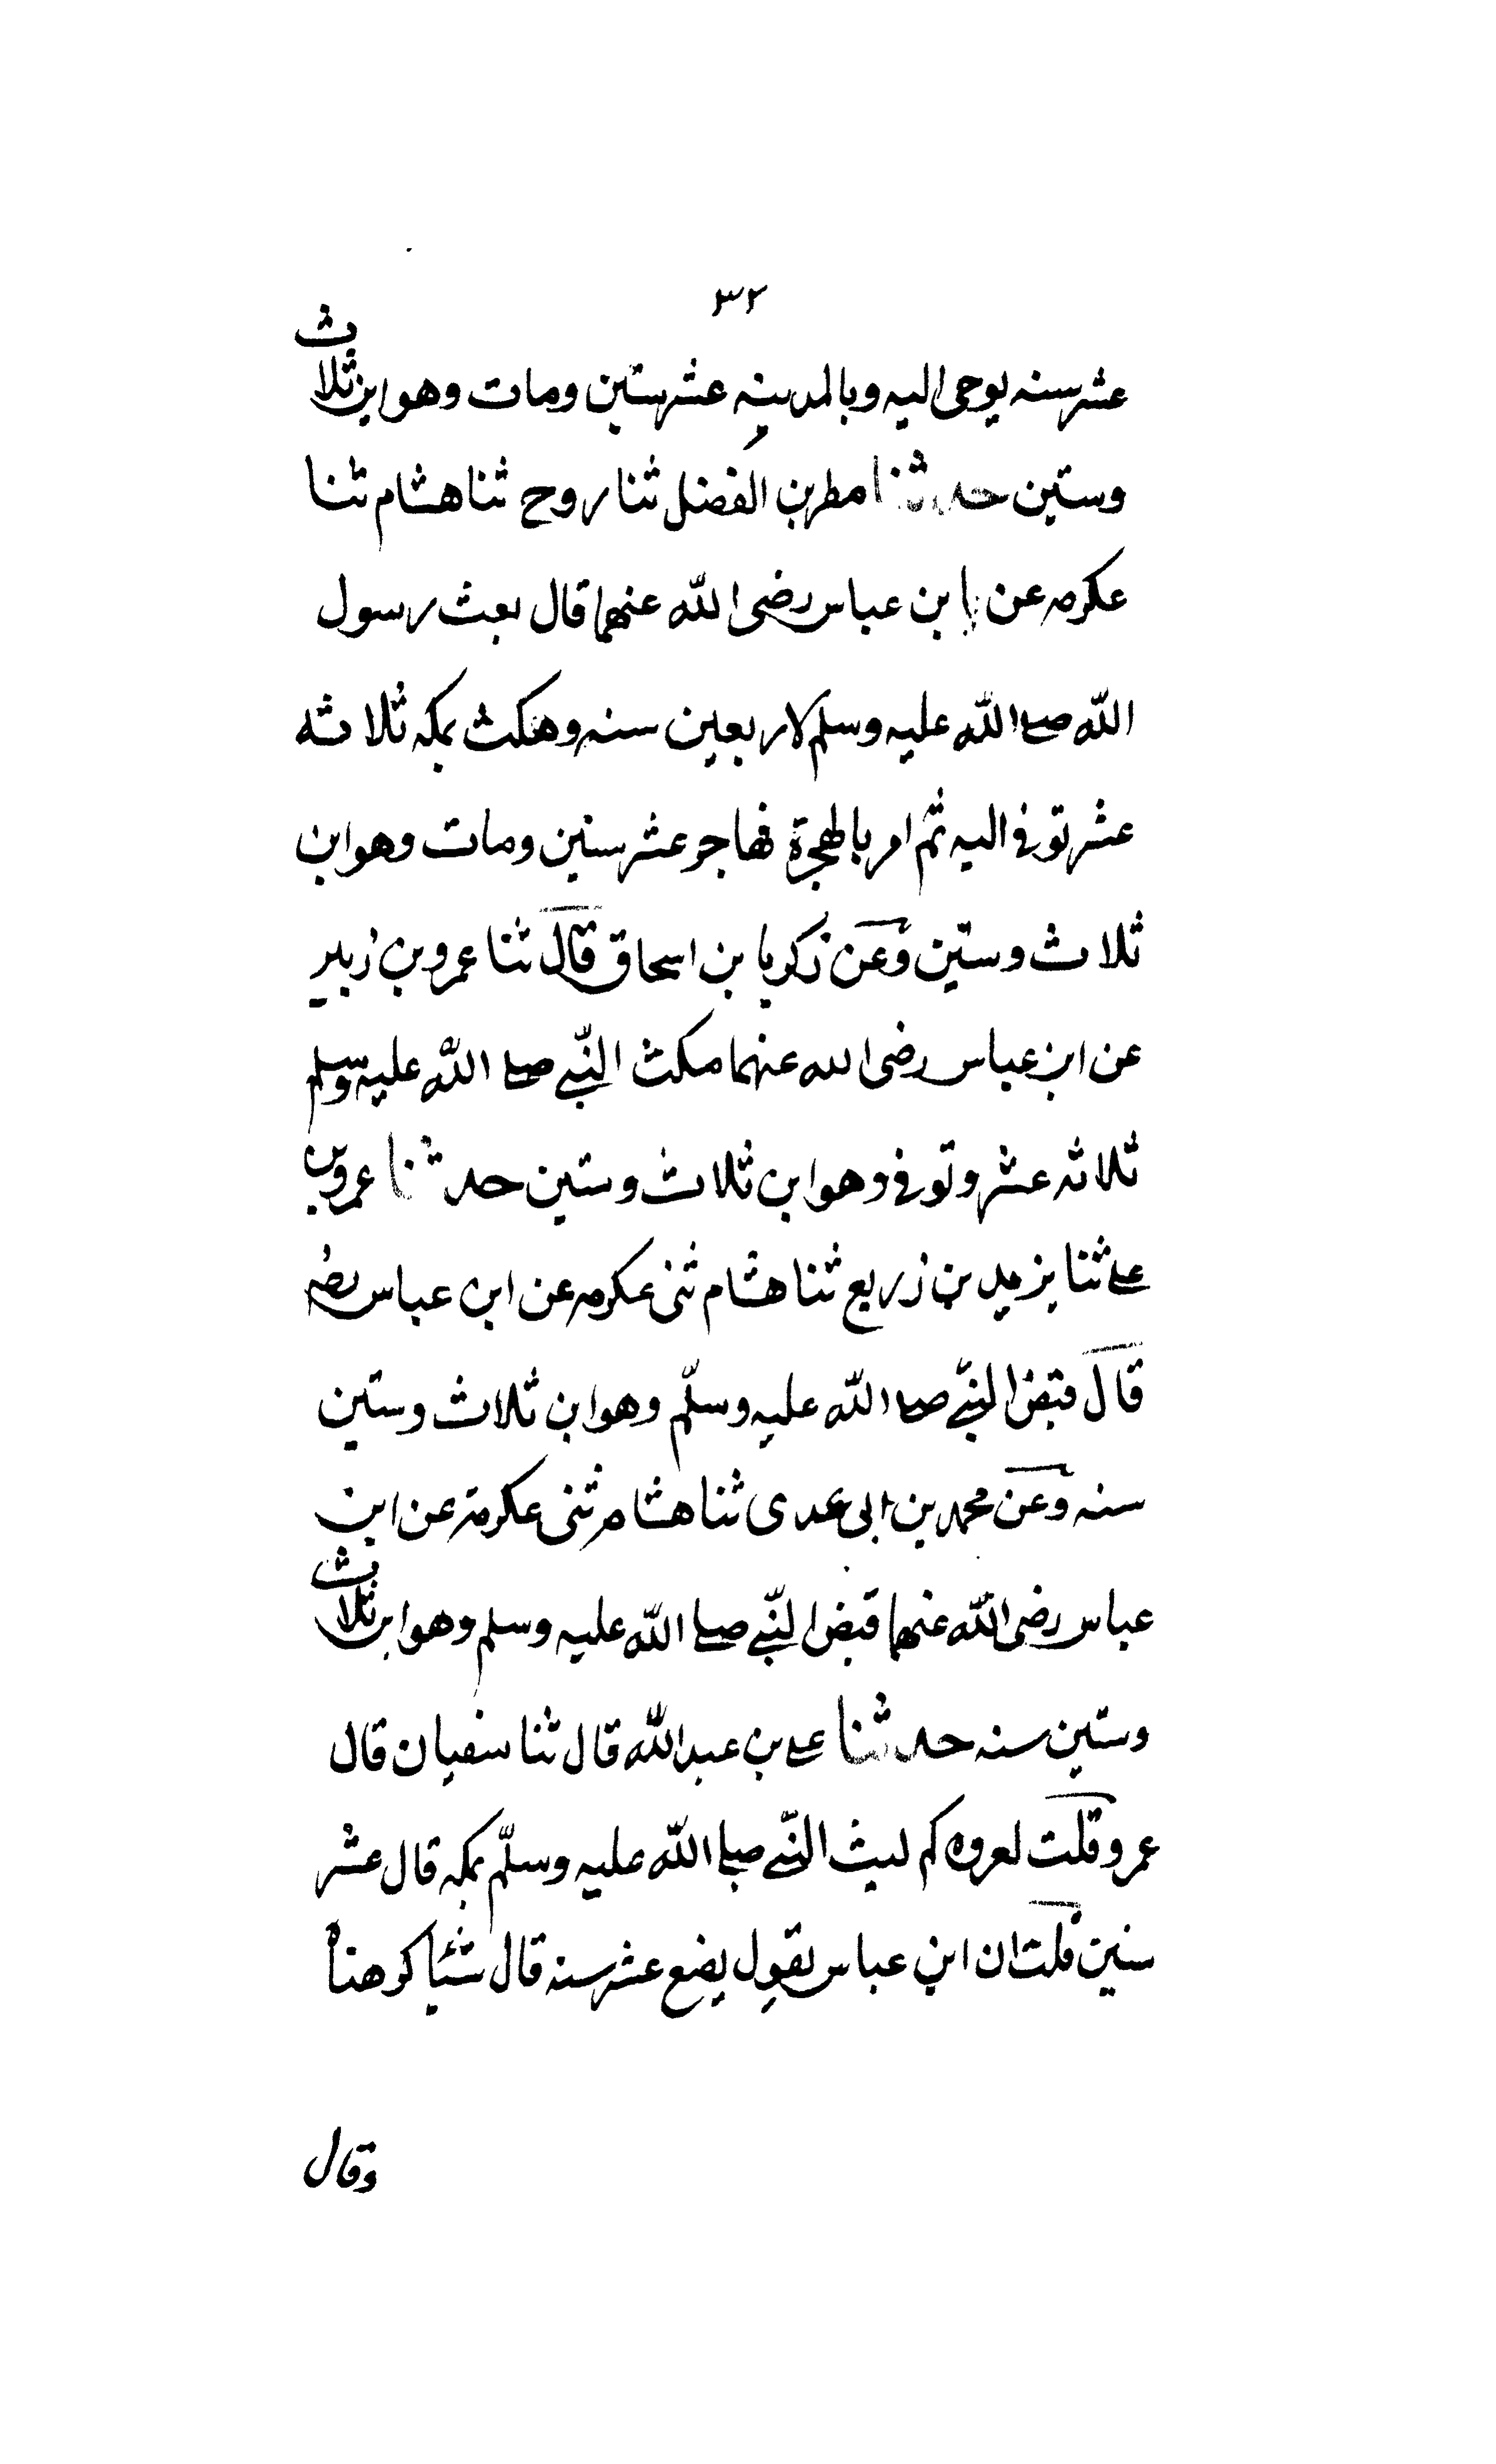 ٣٢
عشر سنه يوحى اليه وبالمدينه عشر ستين ومات وهو ابن ثلاث
وستين حدثنا مطر بن الفضل ثنا روح ثنا هشام ثنا
عكرمه عن ابن عباس رضى الله عنهما قال بعث رسول
الله صلى الله عليه وسلم لاربعين سنه ومكث بمكه ثلاثه
عشر توفى اليه ثم امر بالهجرة فهاجر عشر سنين ومات وهو ابن
ثلاث وستين وعن زكريا بن اسحاق قال ثنا عمرو بن زبير
عن ابن عباس رضى الله عنهما مكث النبى صلى الله عليه وسلم
ثلاثه عشر وتوفى وهو ابن ثلاث وستين حدثنا عمرو بن
على ثنا يزيد بن زريع ثنا هشام ثنى عكرمه عن ابن عباس رضه
قال قبض النبى صلى الله عليه وسلم وهو ابن ثلاث وستين
سنه وعن محمد بن ابى عدى ثنا هشام ثنى عكرمة عن ابن
عباس رضى الله عنهما قبض النبى صلى الله عليه وسلم وهو ابن ثلاث
وستين سنه حدثنا على بن عبد الله قال ثنا سفيان قال
عمرو قلت لعروه كم لبث النبى صلى الله عليه وسلم بمكه قال عشر
سنين قلت ان ابن عباس يقول بضع عشر سنه قال شيئا كرهناه
وقال